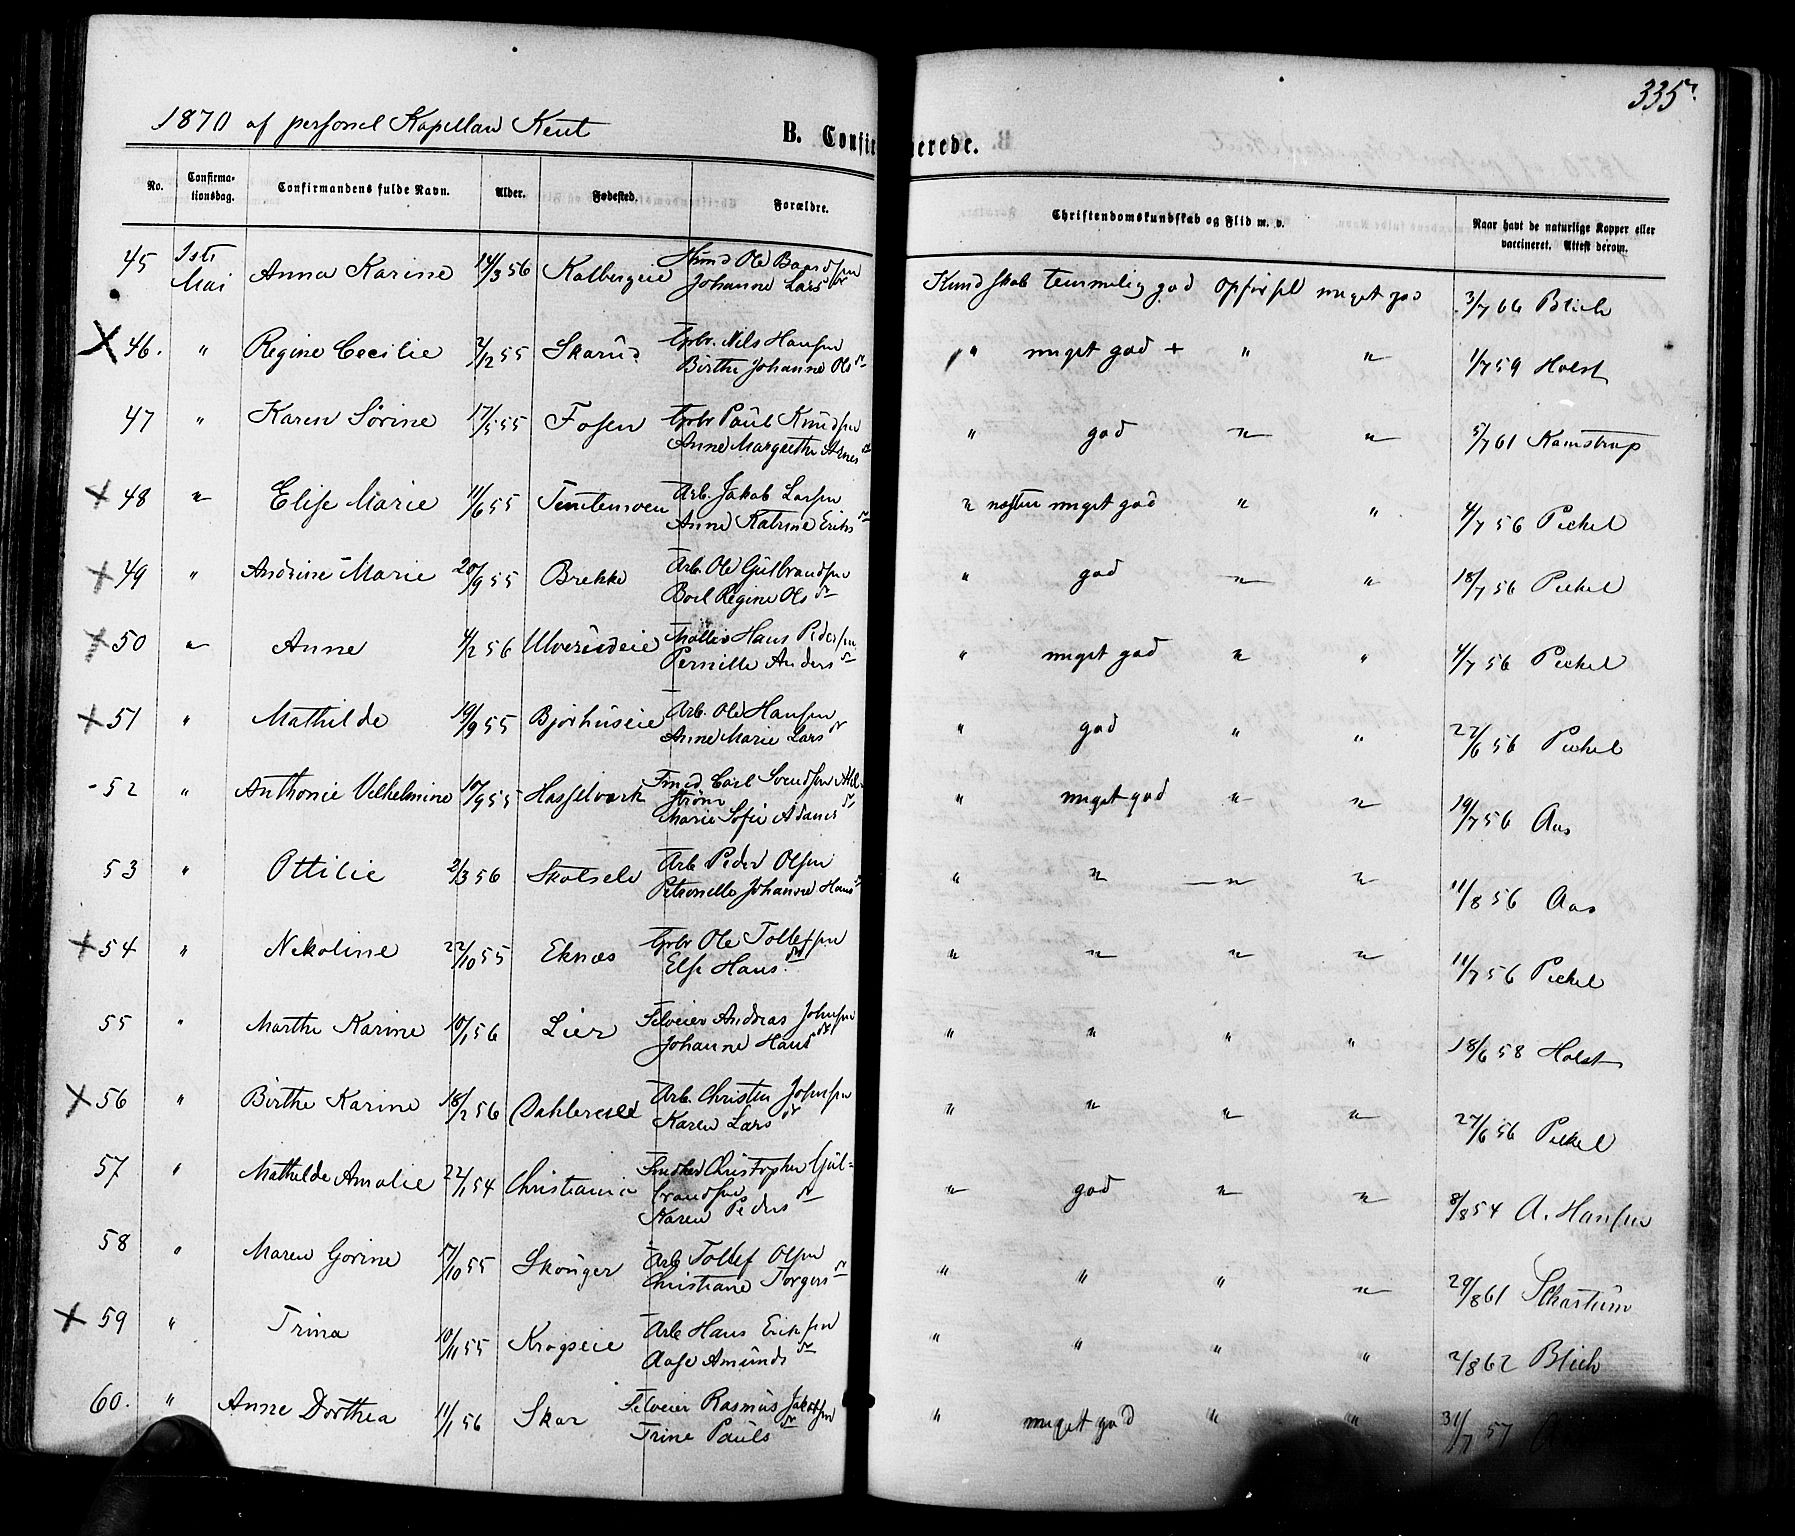 335
1870 af personel Kapellan Keut
B. Confirmerede.
No. Confirma-tionsdag. Confirmandens fulde Navn. Alder. Fødested. Forældre. Christendomskundskab og Flid m. v. Naar havt de naturlige Kopper eller vaccineret. Attest derom.
45 1ste Mai Anna Karine 14/3 56 Kolbergeie Ole Baardsen Kundskab temmelig god Opførsel meget god 3/7 66 Blich
Johanne Larsdr
X 46. " Regine Cecilie 2/12 55 Skarud Gbr. Nils Hansen " meget god + " " 1/7 59 Holst
Birthe Johanne Olsdr
47 " Karen Sørine 17/5 55 Fosen Gbr Paul Knudsen " god " " 5/7 61 Kamstrup
Anne Margrethe Arnesdr
+ 48 " Elise Marie 11/6 55 Arb. Jakob Larsen " næsten meget god " " 4/7 56 Peckel
Anne Katrine Eriksdr
+ 49 " Andrine Marie 20/9 55 Brekke Arb. Ole Gulbrandsen " god " " 18/7 56 Peckel
Boel Regine Olsdr
+ 50 " Anne 4/2 56 Ulverudeie Møller Hans Pedersen " meget god " " 4/7 56 Peckel
Pernille Andersdr
+ 51 " Mathilde 19/9 55 Bjørhuseie Arb. Ole Hansen " god " " 27/6 56 Peckel
Anne Marie Larsdr
- 52 " Anthonie Vilhelmine 10/9 55 Hasselværk Smed Carl Svendsen Ahl- " meget god " " 19/7 56 Aas
strøm
Marie Sofie Adamsdr
53 " Ottilie 2/3 56 Skotselv Arb Peder Olsen " " " " 11/8 56 Aas
Petronelle Johanne Hansdr
+ 54 " Nekoline 22/10 55 Eknæs Gbr Ole Tollefsen " " " " 11/7 56 Peckel
Else Hansdr
55 " Marthe Karine 10/1 56 Lier Selveier Andreas Johnsen " " " " 18/6 58 Holst
Johanne Hansdr
X 56 " Birthe Karine 18/2 56 Arb. Christen Johnsen " " " " 27/6 56 Peckel
Karen Larsdr
57 " Mathilde Amalie 22/1 54 Christiania Snedker Christopher Gul- " god " " 8/8 54 A. Hansen
brandsen
Karen Pedersdr
58 " Maren Gorine 17/10 55 Skouger Arb Tollef Olsen " " " " 29/8 61 Schartum
Christiane Torgersdr
+ 59 " Trina 10/11 55 Krogseie Arb Hans Eriksen " " " " 2/8 62 Blich
Aase Amundsdr
60. " Anne Dorthea 11/1 56 Skar Selveier Rasmus Jakobsen " meget god " " 31/7 57
Trine Paulsdr